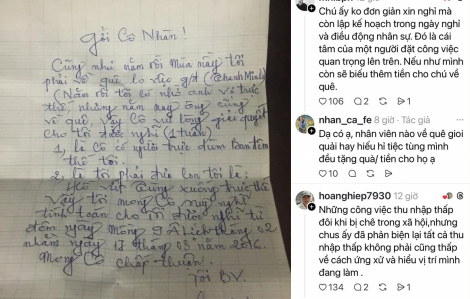 Gởi Cô Nhân!
Cũng như năm rồi Mùa này tôi
phải về quê lo việc gđ (Thanh Minh)
(Năm rồi tôi có nhờ anh Vũ trực
thế, nhưng năm nay ông cũng
về quê, Vậy Cô vui lòng giải quyết
cho tôi được nghỉ (1 tuần)
1, là Cô có người trực dùm Ban đêm
thế tôi.
2, là tôi phải đưa con tôi là:
xuống trực thế
Vậy tôi mong Cô suy nghĩ
tính toán cho tôi được nghỉ từ
đêm ngày Mồng lịch tháng 02
nhằm ngày tháng 03 năm 2016.
Mong Cô chấp thuận.
Tôi BV.
Chú ấy ko đơn giản xin nghỉ mà
còn lập kế hoạch trong ngày nghỉ
và điều động nhân sự. Đó là cái
tâm của một người đặt công việc
quan trọng lên trên. Nếu như mình
còn sẽ biếu thêm tiền cho chú về
quê.
106 2 1
nhan_ca_fe 8 giờ · Tác giả
Dạ có ạ, nhân viên nào về quê gioi
quải hay hiếu hỉ tiệc tùng mình
đều tặng quà/ tiền cho họ ạ
10
hoanghiep7930 12 giờ
Những công việc thu nhập thấp
đôi khi bị chê trong xã hội,nhưng
chus ấy đã phản biện lại tất cả thu
nhập thấp không phải cũng thấp
về cách ứng xử và hiểu vị trí mình
đang làm .
134 2 1